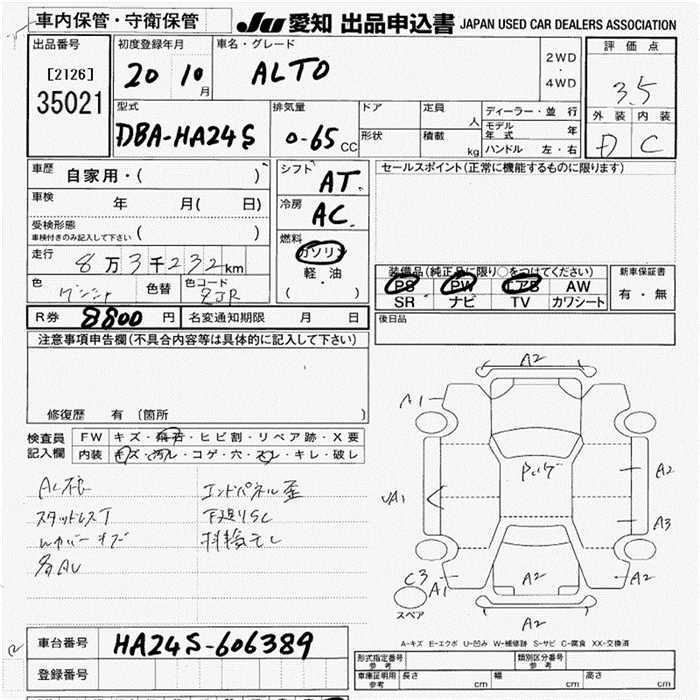 車内保管・守衛保管
JU 愛知 出品申込書 JAPAN USED CAR DEALERS ASSOCIATION
出品番号
[2126]
35021
初度登録年月
20 10月
車名・グレード
ALTO
2WD
・
4WD
評価点
3.5
外装 内装
D C
型式
DBA-HA24S
排気量
0-65 CC
ドア
形状
定員 人
積載 kg
ディーラー・並行
モデル年式 年
ハンドル 左・右
車歴 自家用・( )
車検 年 月( 日)
受検形態
車検付きのみ記入して下さい ( )
走行 8万3千232km
色
色替
色コード
ZJR
シフト AT
冷房 AC
燃料
ガソリン
軽・油
( )
セールスポイント(正常に機能するものに限ります)
装備品(純正品に限り○をつけてください)
PS PW エアB AW
SR ナビ TV カワシート
新車保証書
有・無
R券 8800円 名変通知期限 月 日
後日品
注意事項申告欄(不具合内容等は具体的に記入して下さい)
修復歴 有 (箇所 )
検査員記入欄
FW キズ・飛石・ヒビ割・リペア跡・X要
内装 キズ・汚レ・コゲ・穴・スレ・キレ・破レ
スタッドレスT
エンドパネル歪
下廻りSC
A2
A1
A2
A1
A3
C3
A1
A2
A2
A2
スペア
A-キズ E-エクボ U-凹み W-補修跡 S-サビ C-腐食 XX-交換済
車台番号 HA24S-606389
登録番号
形式指定番号 参考
類別区分番号 参考
車庫証明用 参考 長さ cm 幅 cm 高さ cm